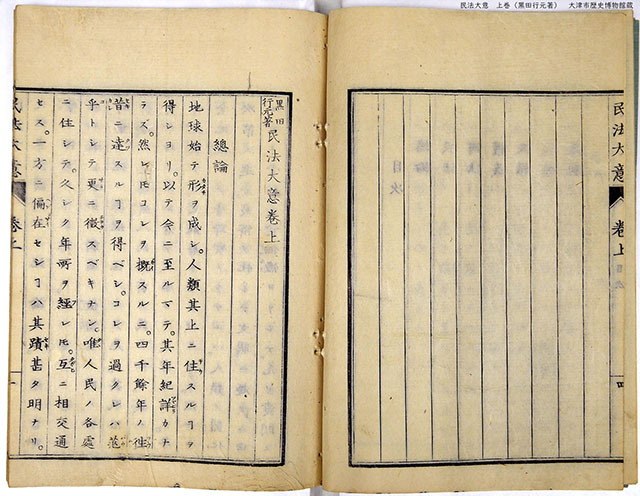 民法大意　上巻（黒田行元著）　大津市歴史博物館蔵
民法大意
卷上
目次
四
黒田行元著 民法大意卷上
總論
地球始テ形ヲ成シ。人類其上ニ住スルヿヲ
得シヨリ。以テ今ニ至ルマデ。其年紀詳カナ
ラズ。然レ𪜈コレヲ概スルニ。四千餘年ノ徃
昔ニ達スルヿヲ得ベシ。コレヲ過クレハ茫
乎トシテ更ニ徴スベキナシ。唯人民ノ各處
ニ住シテ。久シク年所ヲ經レ𪜈。互ニ相交通
セス。一方ニ偏在セシヿハ其蹟甚タ明ナリ。
民法大意
卷上
一